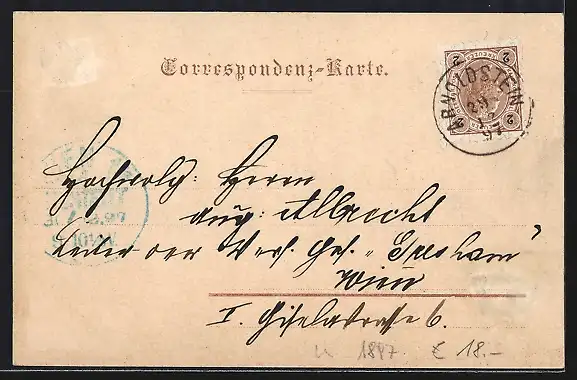 Correspondenz-Karte.
2 2
ARNOLDSTEIN
97
Hochwolg: Herrn
Aug: Albrecht
Leiter der Vers. Ges. „Gresham"
Wien
I. Giselastrasse 6.
1897. € 18.-